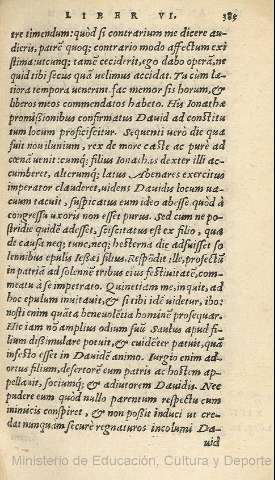 LIBER VI. 385
tre timendum: quòd si contrarium me dicere au-
dieris, patrẽ quoq; contrario modo affectum exi
stima: utcunq; tamẽ ceciderit, ego dabo operã, ne
quid tibi secus quã uelimus accidat. Tu cùm læ-
tiora tempora uenerint fac memor sis horum, &
liberos meos commendatos habeto. His Ionathæ
promißionibus confirmatus Dauid ad constitu
tum locum proficiscitur. Sequenti uerò die quæ
fuit nouilunium, rex de more castè ac purè ad
cœnã uenit: cumq; filius Ionathas dexter illi ac
cumberet, alterumq; latus Abenares exercitus
imperator clauderet, uidens Dauidis locum ua-
cuum tacuit, suspicatus eum ideo abesse, quòd à
congressu uxoris non esset purus. Sed cum ne po-
stridie quidẽ adesset, sciscitatus est ex filio, qua
de causa neq; tunc, neq; hesterna die adfuisset so
lennibus epulis Ießæi filius. Respõdit ille, profectũ
in patriã ad solennẽ tribus eius festiuitatẽ, com-
meatu à se impetrato. Quinetiam me, inquit, ad
hoc epulum inuitauit, & si tibi idẽ uidetur, ibo:
nosti enim quãta beneuolẽtia hominẽ prosequar.
Hic iam nõ amplius odium suũ Saulus apud fi-
lium dißimulare potuit, & euidẽter patuit, quã
infesto esset in Dauidẽ animo. Iurgio enim ad-
ortus filium, desertorẽ eum patris ac hostem ap-
pellauit, sociumq; & adiutorem Dauidis. Nec
pudere eum quòd nullo parentum respectu cum
inimicis conspiret, & non poßit induci ut cre-
dat nunquam securè regnaturos incolumi Da-
uid
Ministerio de Educación, Cultura y Deporte